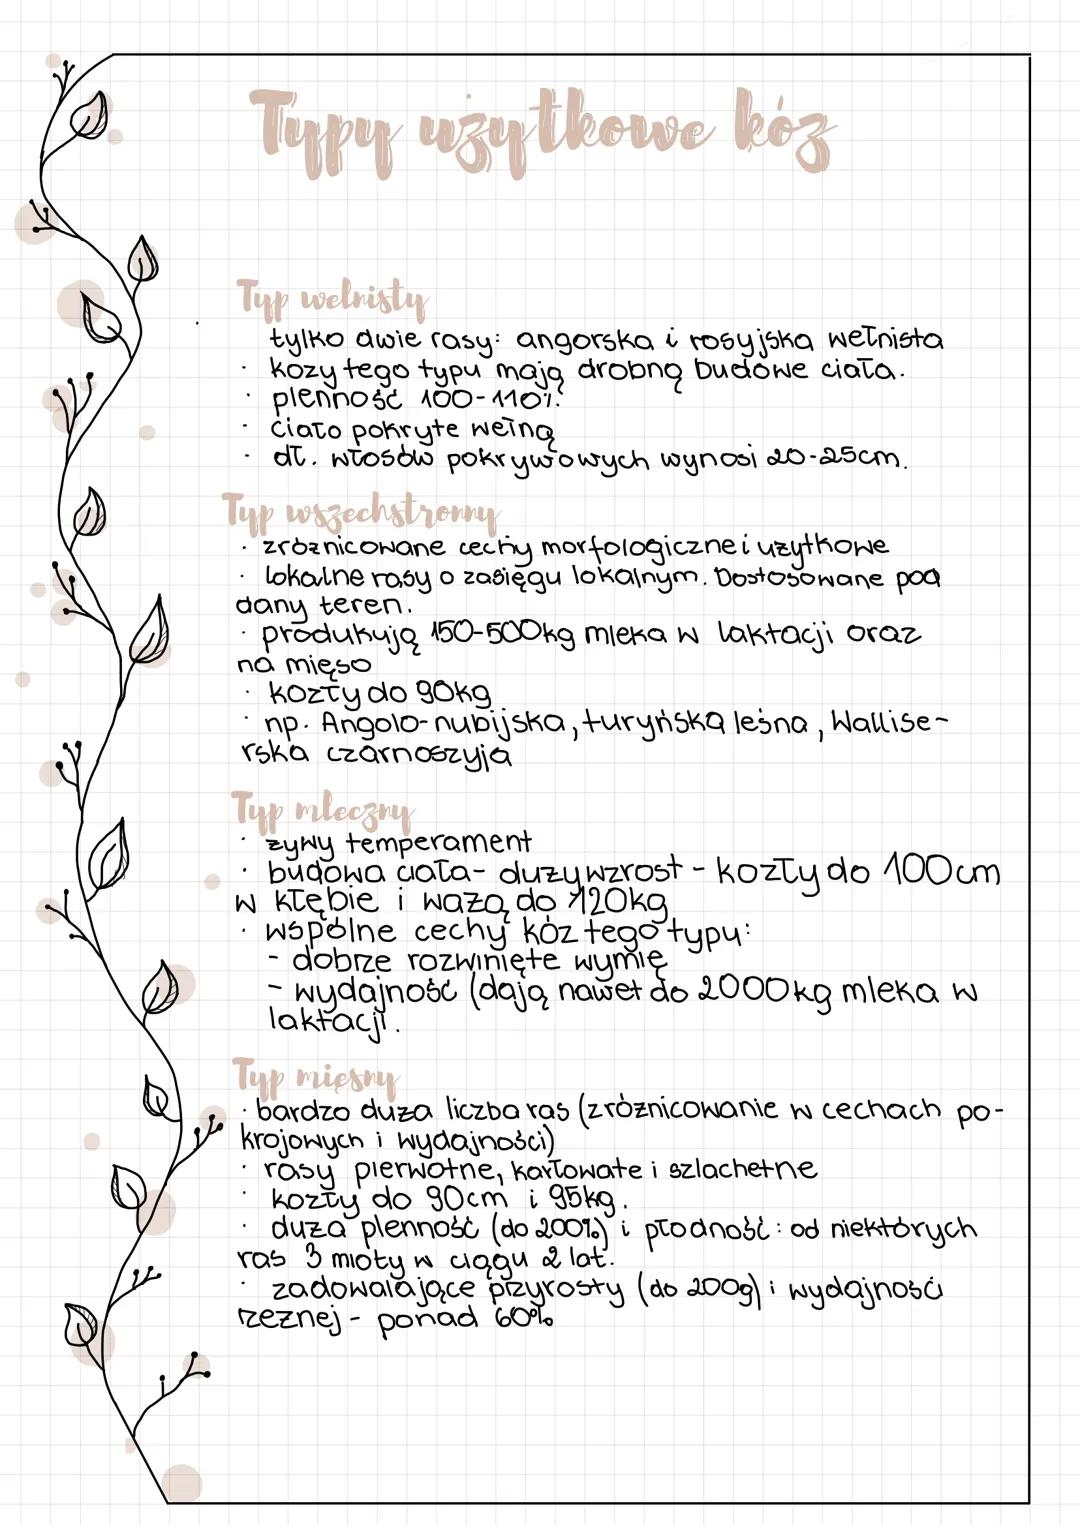 Typy użytkowe kóz
Typ wełnisty
tylko dwie rasy: angorska i rosyjska wełnista
· kozy tego typu mają drobną budowe ciała.
· plenność 100-110%
· ciało pokryte wełną
· dł. włosów pokrywowych wynosi 20-25cm.
Typ wszechstronny
· zróżnicowane cechy morfologiczne i użytkowe
· lokalne rasy o zasięgu lokalnym. Dostosowane pod
dany teren.
· produkują 150-500kg mleka w laktacji oraz
na mięso
· kozły do 90kg
· np. Anglo-nubijska, turyńska leśna, Wallise-
rska czarnoszyja
Typ mleczny
· żywy temperament
· budowa ciała- duży wzrost - kozły do 100cm
w kłębie i ważą do 120kg
· wspólne cechy kóz tego typu:
- dobrze rozwinięte wymię
- wydajność (dają nawet do 2000kg mleka w
laktacji.
Typ mięsny
· bardzo duża liczba ras (zróżnicowanie w cechach po-
krojowych i wydajności)
· rasy pierwotne, karłowate i szlachetne
· kozły do 90cm i 95kg.
· duża plenność (do 200%) i płodność: od niektórych
ras 3 mioty w ciągu 2 lat.
· zadowalające przyrosty (do 200g) i wydajność
rzeźnej - ponad 60%